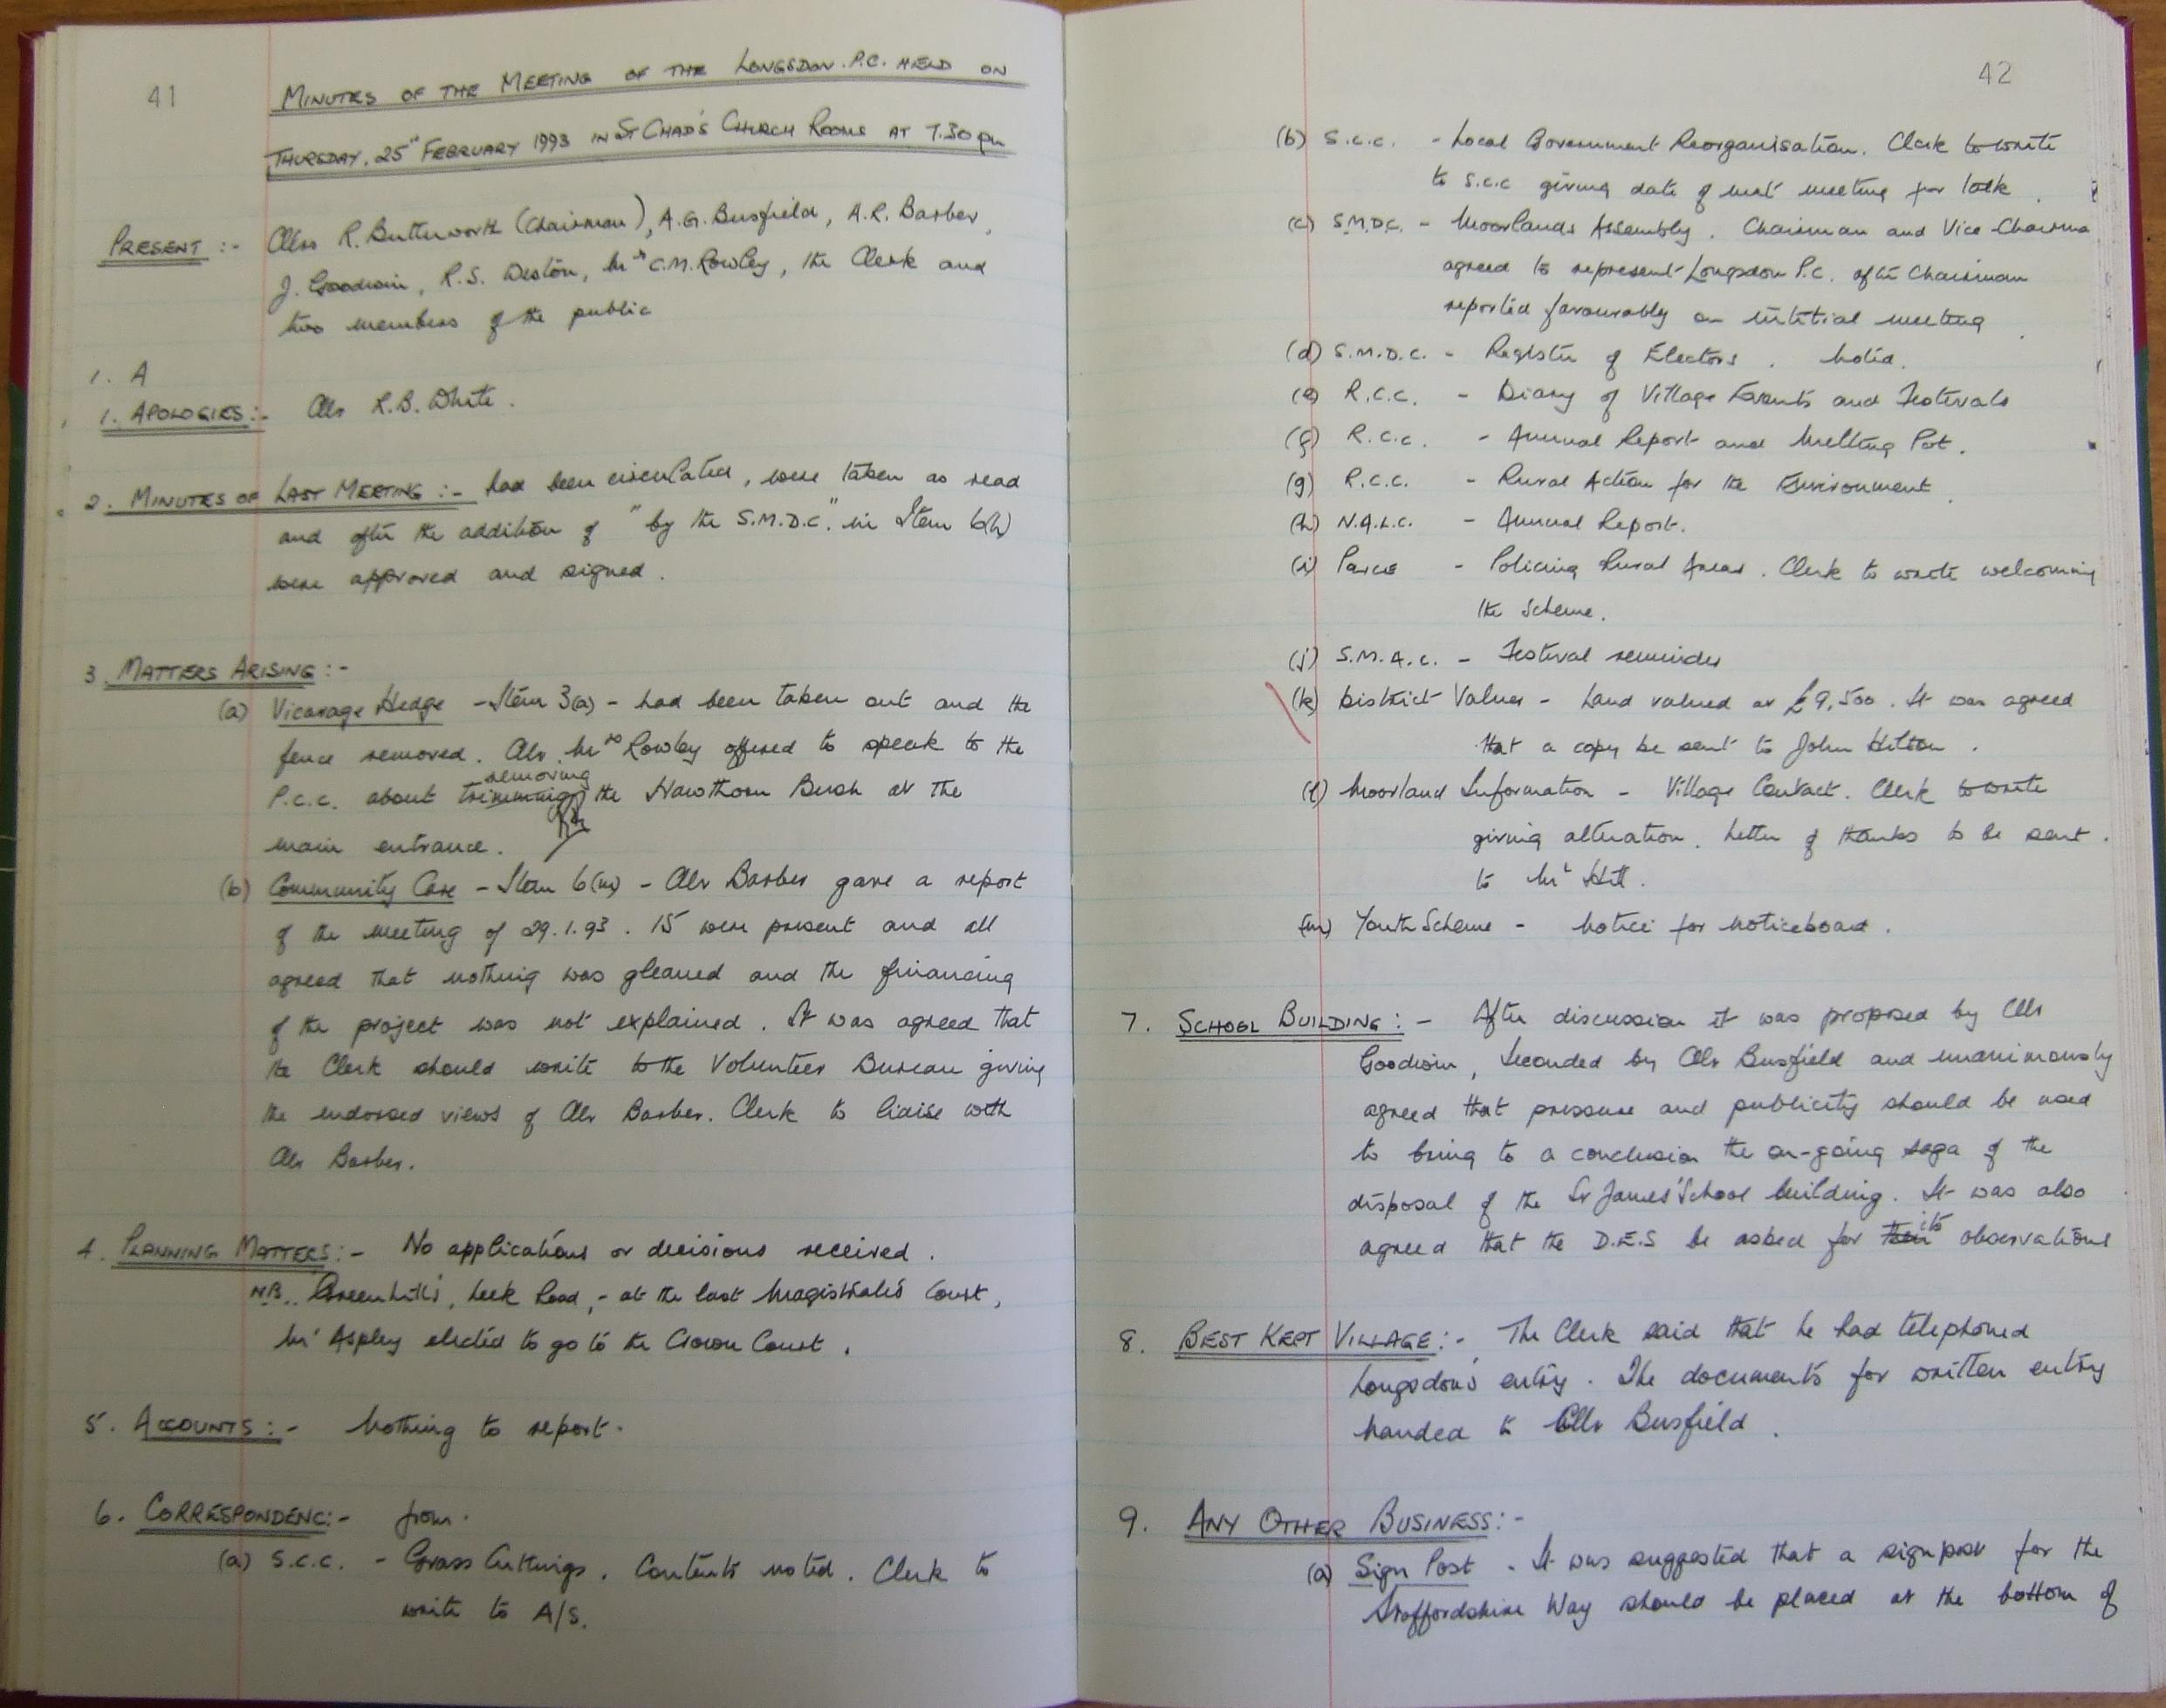 41
MINUTES OF THE MEETING OF THE LONGSDON P.C. HELD ON
THURSDAY, 25th FEBRUARY 1993 IN ST CHAD'S CHURCH ROOMS AT 7.30pm
PRESENT :- Cllrs R. Butterworth (Chairman), A.G. Busfield, A.R. Barber,
J. Goodwin, R.S. Weston, Mrs C.M. Rowley, the Clerk and
two members of the public
1. A
1. APOLOGIES:- Cllr R.B. White.
2. MINUTES OF LAST MEETING :- had been circulated, were taken as read
and after the addition of "by the S.M.D.C." in Item 6(h)
were approved and signed.
3. MATTERS ARISING :-
(a) Vicarage Hedge - Item 3(a) - had been taken out and the
fence removed. Cllr. Mrs Rowley offered to speak to the
removing
P.C.C. about trimming the Hawthorn Bush at the
main entrance.
(b) Community Care - Item 6(m) - Cllr Barber gave a report
of the meeting of 29.1.93. 15 were present and all
agreed that nothing was gleaned and the financing
of the project was not explained. It was agreed that
the Clerk should write to the Volunteer Bureau giving
the endorsed views of Cllr Barber. Clerk to liaise with
Cllr Barber.
4. PLANNING MATTERS :- No applications or decisions received.
N.B. 'Greenhills', Leek Road, - at the last Magistrate's Court,
Mr Aspley elected to go to the Crown Court.
5. ACCOUNTS :- Nothing to report.
6. CORRESPONDENC:- from.
(a) S.C.C. - Grass Cuttings. Contents noted. Clerk to
write to A/S.
42
(b) S.C.C. - Local Government Reorganisation. Clerk to write
to S.C.C giving date of next meeting for talk.
(c) S.M.D.C. - Moorlands Assembly. Chairman and Vice-Chairma
agreed to represent Longsdon P.C. after Chairman
reported favourably on intitial meeting
(d) S.M.D.C. - Register of Electors. Noted.
(e) R.C.C. - Diary of Village Events and Festivals
(f) R.C.C. - Annual Report and Melting Pot.
(g) R.C.C. - Rural Action for the Environment.
(h) N.A.L.C. - Annual Report.
(i) - Policing Rural Areas. Clerk to write welcoming
the Scheme.
(j) S.M.A.C. - Festival reminder
(k) District Valuer - Land valued at £9,500. It was agreed
that a copy be sent to John Hilton.
(l) Moorland Information - Village Contact. Clerk to write
giving alteration. Letter of thanks to be sent.
to Mr Hill.
(m) Youth Scheme - Notice for Noticeboard.
7. SCHOOL BUILDING :- After discussion it was proposed by Cllr
Goodwin, seconded by Cllr Busfield and unanimously
agreed that pressure and publicity should be used
to bring to a conclusion the on-going saga of the
disposal of the St James' School building. It was also
agreed that the D.E.S be asked for their its observations
8. BEST KEPT VILLAGE :- The Clerk said that he had telephoned
Longsdon's entry. The documents for written entry
handed to Cllr Busfield.
9. ANY OTHER BUSINESS :-
(a) Sign Post - It was suggested that a signpost for the
Staffordshire Way should be placed at the bottom of